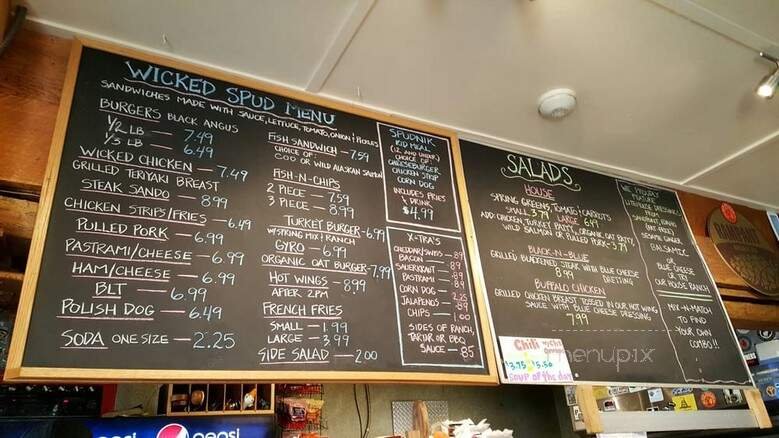 WICKED SPUD MENU
SANDWICHES MADE WITH SAUCE, LETTUCE, TOMATO, ONION & PICKLES
BURGERS BLACK ANGUS
1/2 LB — 7.49
1/3 LB — 6.49
WICKED CHICKEN — 7.49
GRILLED TERIYAKI BREAST
STEAK SANDO — 8.99
CHICKEN STRIPS/FRIES — 6.49
PULLED PORK — 6.99
PASTRAMI/CHEESE — 6.99
HAM/CHEESE — 6.99
BLT — 6.99
POLISH DOG — 6.49
SODA ONE SIZE — 2.25
FISH SANDWICH — 7.59
CHOICE OF:
COD OR WILD ALASKAN SALMON
FISH-N-CHIPS
2 PIECE — 7.59
3 PIECE — 8.99
TURKEY BURGER — 6.99
W/SPRING MIX & RANCH
GYRO — 6.99
ORGANIC OAT BURGER — 7.99
HOT WINGS — 8.99
AFTER 2PM
FRENCH FRIES
SMALL — 1.99
LARGE — 3.99
SIDE SALAD — 2.00
SPUDNIK
KID MEAL
(12 AND UNDER)
CHOICE OF:
CHEESEBURGER
CHICKEN STRIP
CORN DOG
INCLUDES FRIES
& DRINK
$4.99
X-TRA'S
CHEDDAR/SWISS — .89
BACON
SAUERKRAUT
PASTRAMI
CORN DOG
JALAPEÑOS
CHIPS — 1.00
SIDES OF RANCH,
TARTAR OR BBQ
SAUCE — .85
SALADS
HOUSE
SPRING GREENS, TOMATO & CARROTS
SMALL 3.79 LARGE 6.49
ADD CHICKEN, TURKEY PATTY, ORGANIC OAT PATTY,
WILD SALMON OR PULLED PORK - 3.79
BLACK-N-BLUE
GRILLED BLACKENED STEAK WITH BLUE CHEESE
8.99 DRESSING
BUFFALO CHICKEN
GRILLED CHICKEN BREAST TOSSED IN OUR HOT WING
SAUCE WITH BLUE CHEESE DRESSING
7.99
WE PROUDLY
FEATURE
LITEHOUSE DRESSING
FROM
SANDPOINT, IDAHO
ANY
SESAME GINGER
BALSAMIC
OR
BLUE CHEESE
OR TRY
OUR HOUSE RANCH
MIX-N-MATCH
TO FIND
YOUR OWN
COMBO!!
Chili
$3.75 $5.50
Soup of the day
menupix
pepsi
pepsi